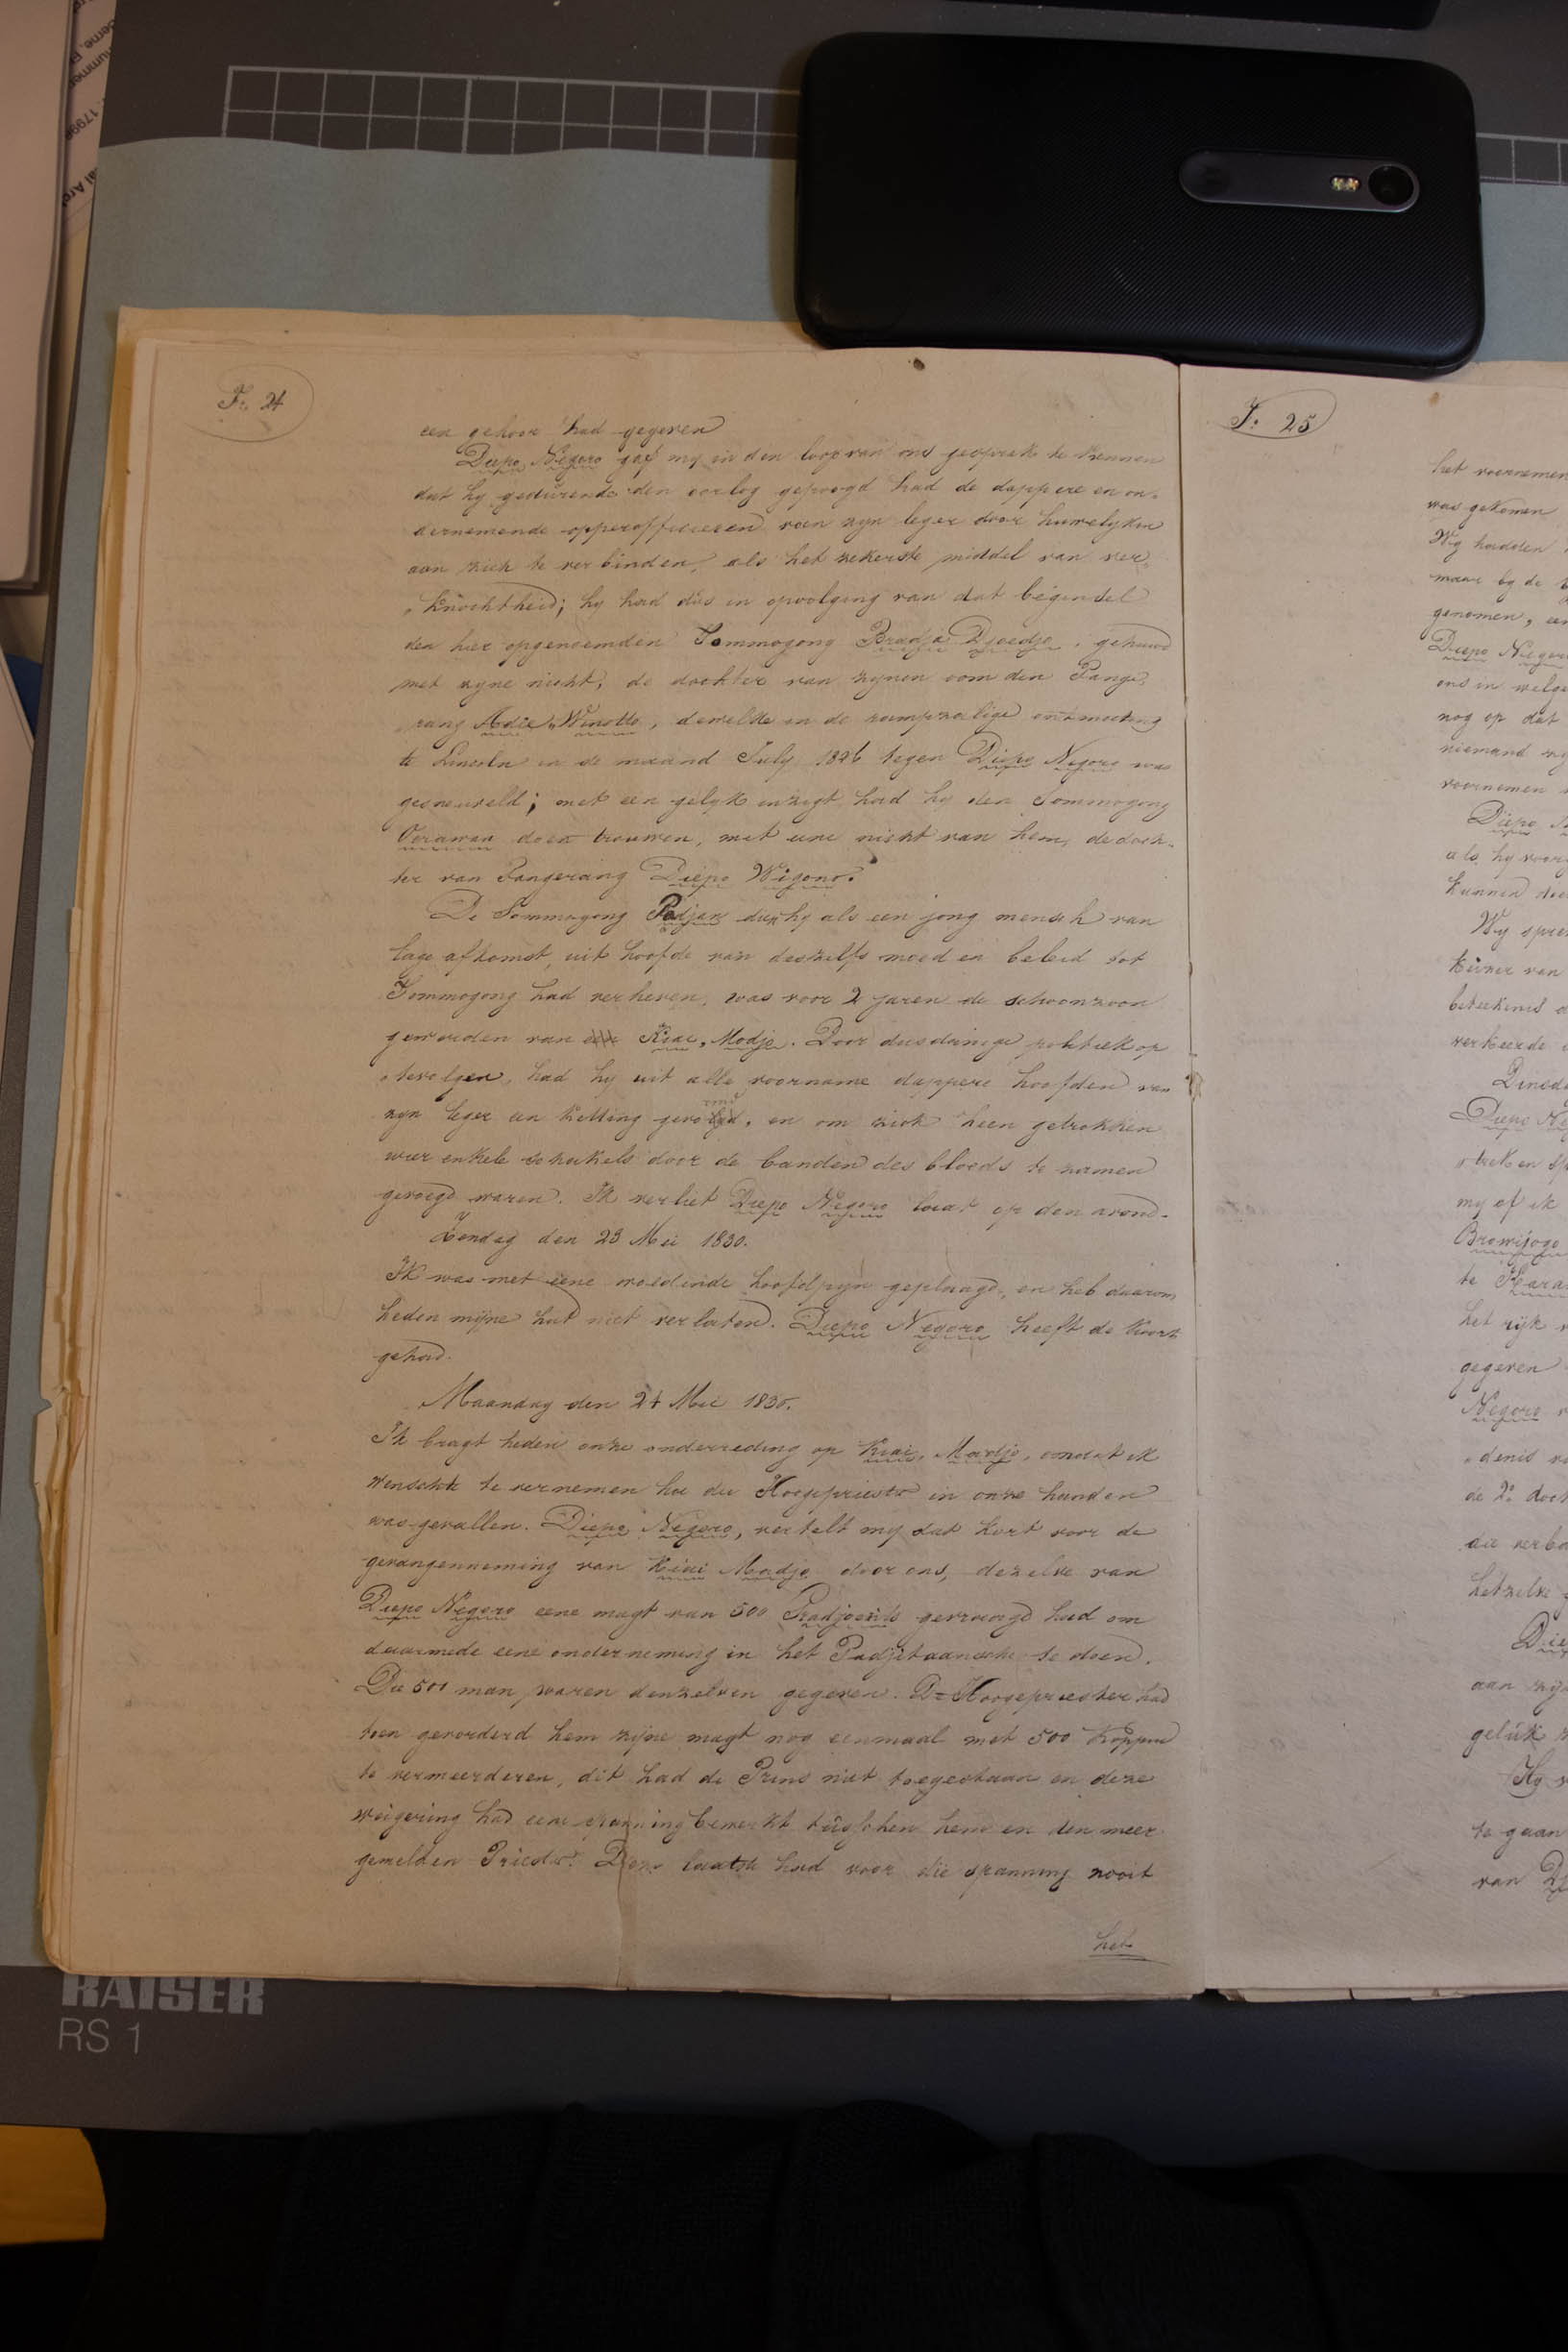 F. 24
een gehoor had gegeven
Diepo Negoro gaf my in den loop van ons gesprek te kennen
dat hy gedurende den oorlog gepoogd had de dappere en on-
dernemende opperofficieren van zyn leger door huwelyken
aan zich te verbinden, als het zekerste middel van ver-
knochtheid; hy had dus in opvolging van dat beginsel
den hier opgenoemden Tommogong Bradja Djoedjo, gehuwd
met zyne nicht, de dochter van zynen oom den Pange-
rang Adie Winotto, dewelke in de rampzalige ontmoeting
te in de maand July 1826 tegen Diepo Negoro was
gesneuveld; met een gelyk inzigt had hy den Tommogong
Oerawan doen trouwen, met eene nicht van hem, de doch-
ter van Pangerang Diepo Wigono.
De Tommogong Padjan dien hy als een jong mensch van
lage afkomst, uit hoofde van deszelfs moed en beleid tot
Tommogong had verheven, was voor 2 jaren de schoonzoon
geworden van Kiai Modjo. Door dusdanige politiek op
tevolgen, had hy uit alle voorname dappere hoofden van
zyn leger een ketting gevormd, en om zich heen getrokken
wier enkele schakels door de banden des bloeds te zamen
gevoegd waren. Ik verliet Diepo Negoro laat op den avond.
Zondag den 23 Mei 1830.
Ik was met eene woedende hoofdpyn geplaagd, en heb daarom
heden mijne hut niet verlaten. Diepo Negoro heeft de koorts
gehad.
Maandag den 24 Mei 1830.
Ik bragt heden onze onderreding op Kiai Modjo, omdat ik
wenschte te vernemen hoe die Hoogepriester in onze handen
was gevallen. Diepo Negoro, vertelt my dat kort voor de
gevangenneming van Kiai Modjo door ons, dezelve van
Diepo Negoro eene magt van 500 Pradjoerits gevraagd had om
daarmede eene onderneming in het Padjitaansche te doen.
Die 500 man waren denzelven gegeven. De Hoogepriester had
toen gevorderd hem zijne magt nog eenmaal met 500 koppen
te vermeerderen, dit had de Prins niet toegestaan en deze
weigering had eene spanning bewerkt tusschen hem en den meer
gemelden Priester. Deze laatste had voor die spanning nooit
het
F. 25
het voornemen
was gekomen
Wy hadden
maar by de
genomen,
Diepo Negoro
ons in
nog op dat
niemand
voornemen
Diepo
als hy
kunnen
Wy
keuze van
beteekenis
verkeerde
Diepo
my of ik
te
het rijk
gegeven
Negoro
denis
de 2e
die
hetzelve
aan
geluk
Hy
te gaan
van
KAISER
RS 1